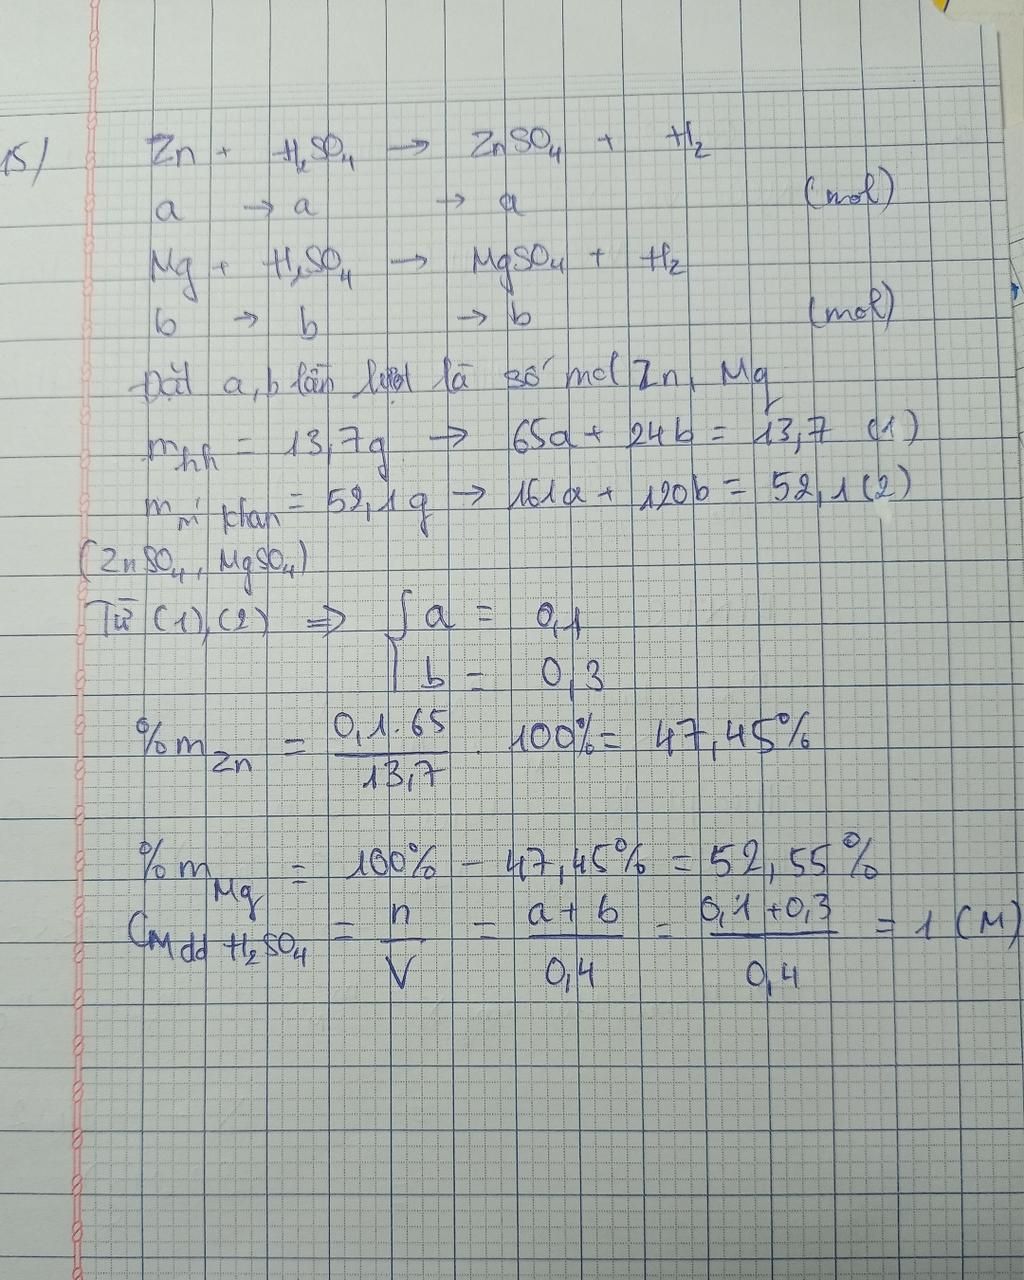 15/ Zn + H₂SO₄ → ZnSO₄ + H₂
a → a → a (mol)
Mg + H₂SO₄ → MgSO₄ + H₂
b → b → b (mol)
Đặt a, b lần lượt là số mol Zn, Mg
m hh = 13,7g → 65a + 24b = 13,7 (1)
m m' khan = 52,1g → 161a + 120b = 52,1 (2)
(ZnSO₄, MgSO₄)
Từ (1), (2) ⇒ { a = 0,1
b = 0,3
%m Zn = 0,1.65/13,7 . 100% = 47,45%
%m Mg = 100% - 47,45% = 52,55%
CM dd H₂SO₄ = n/V = a + b/0,4 = 0,1 + 0,3/0,4 = 1 (M)